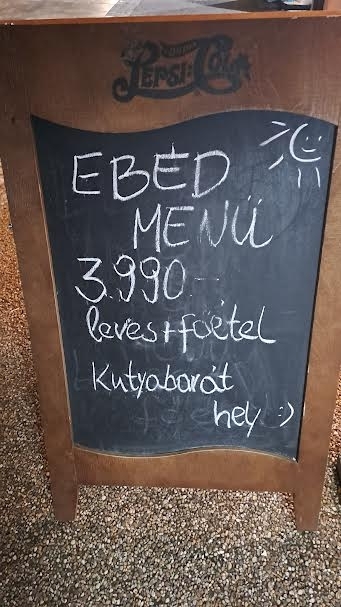 PEPSI:Cola
EBÉD
MENÜ
3.990.-
leves+főétel
Kutyabarát
hely :)